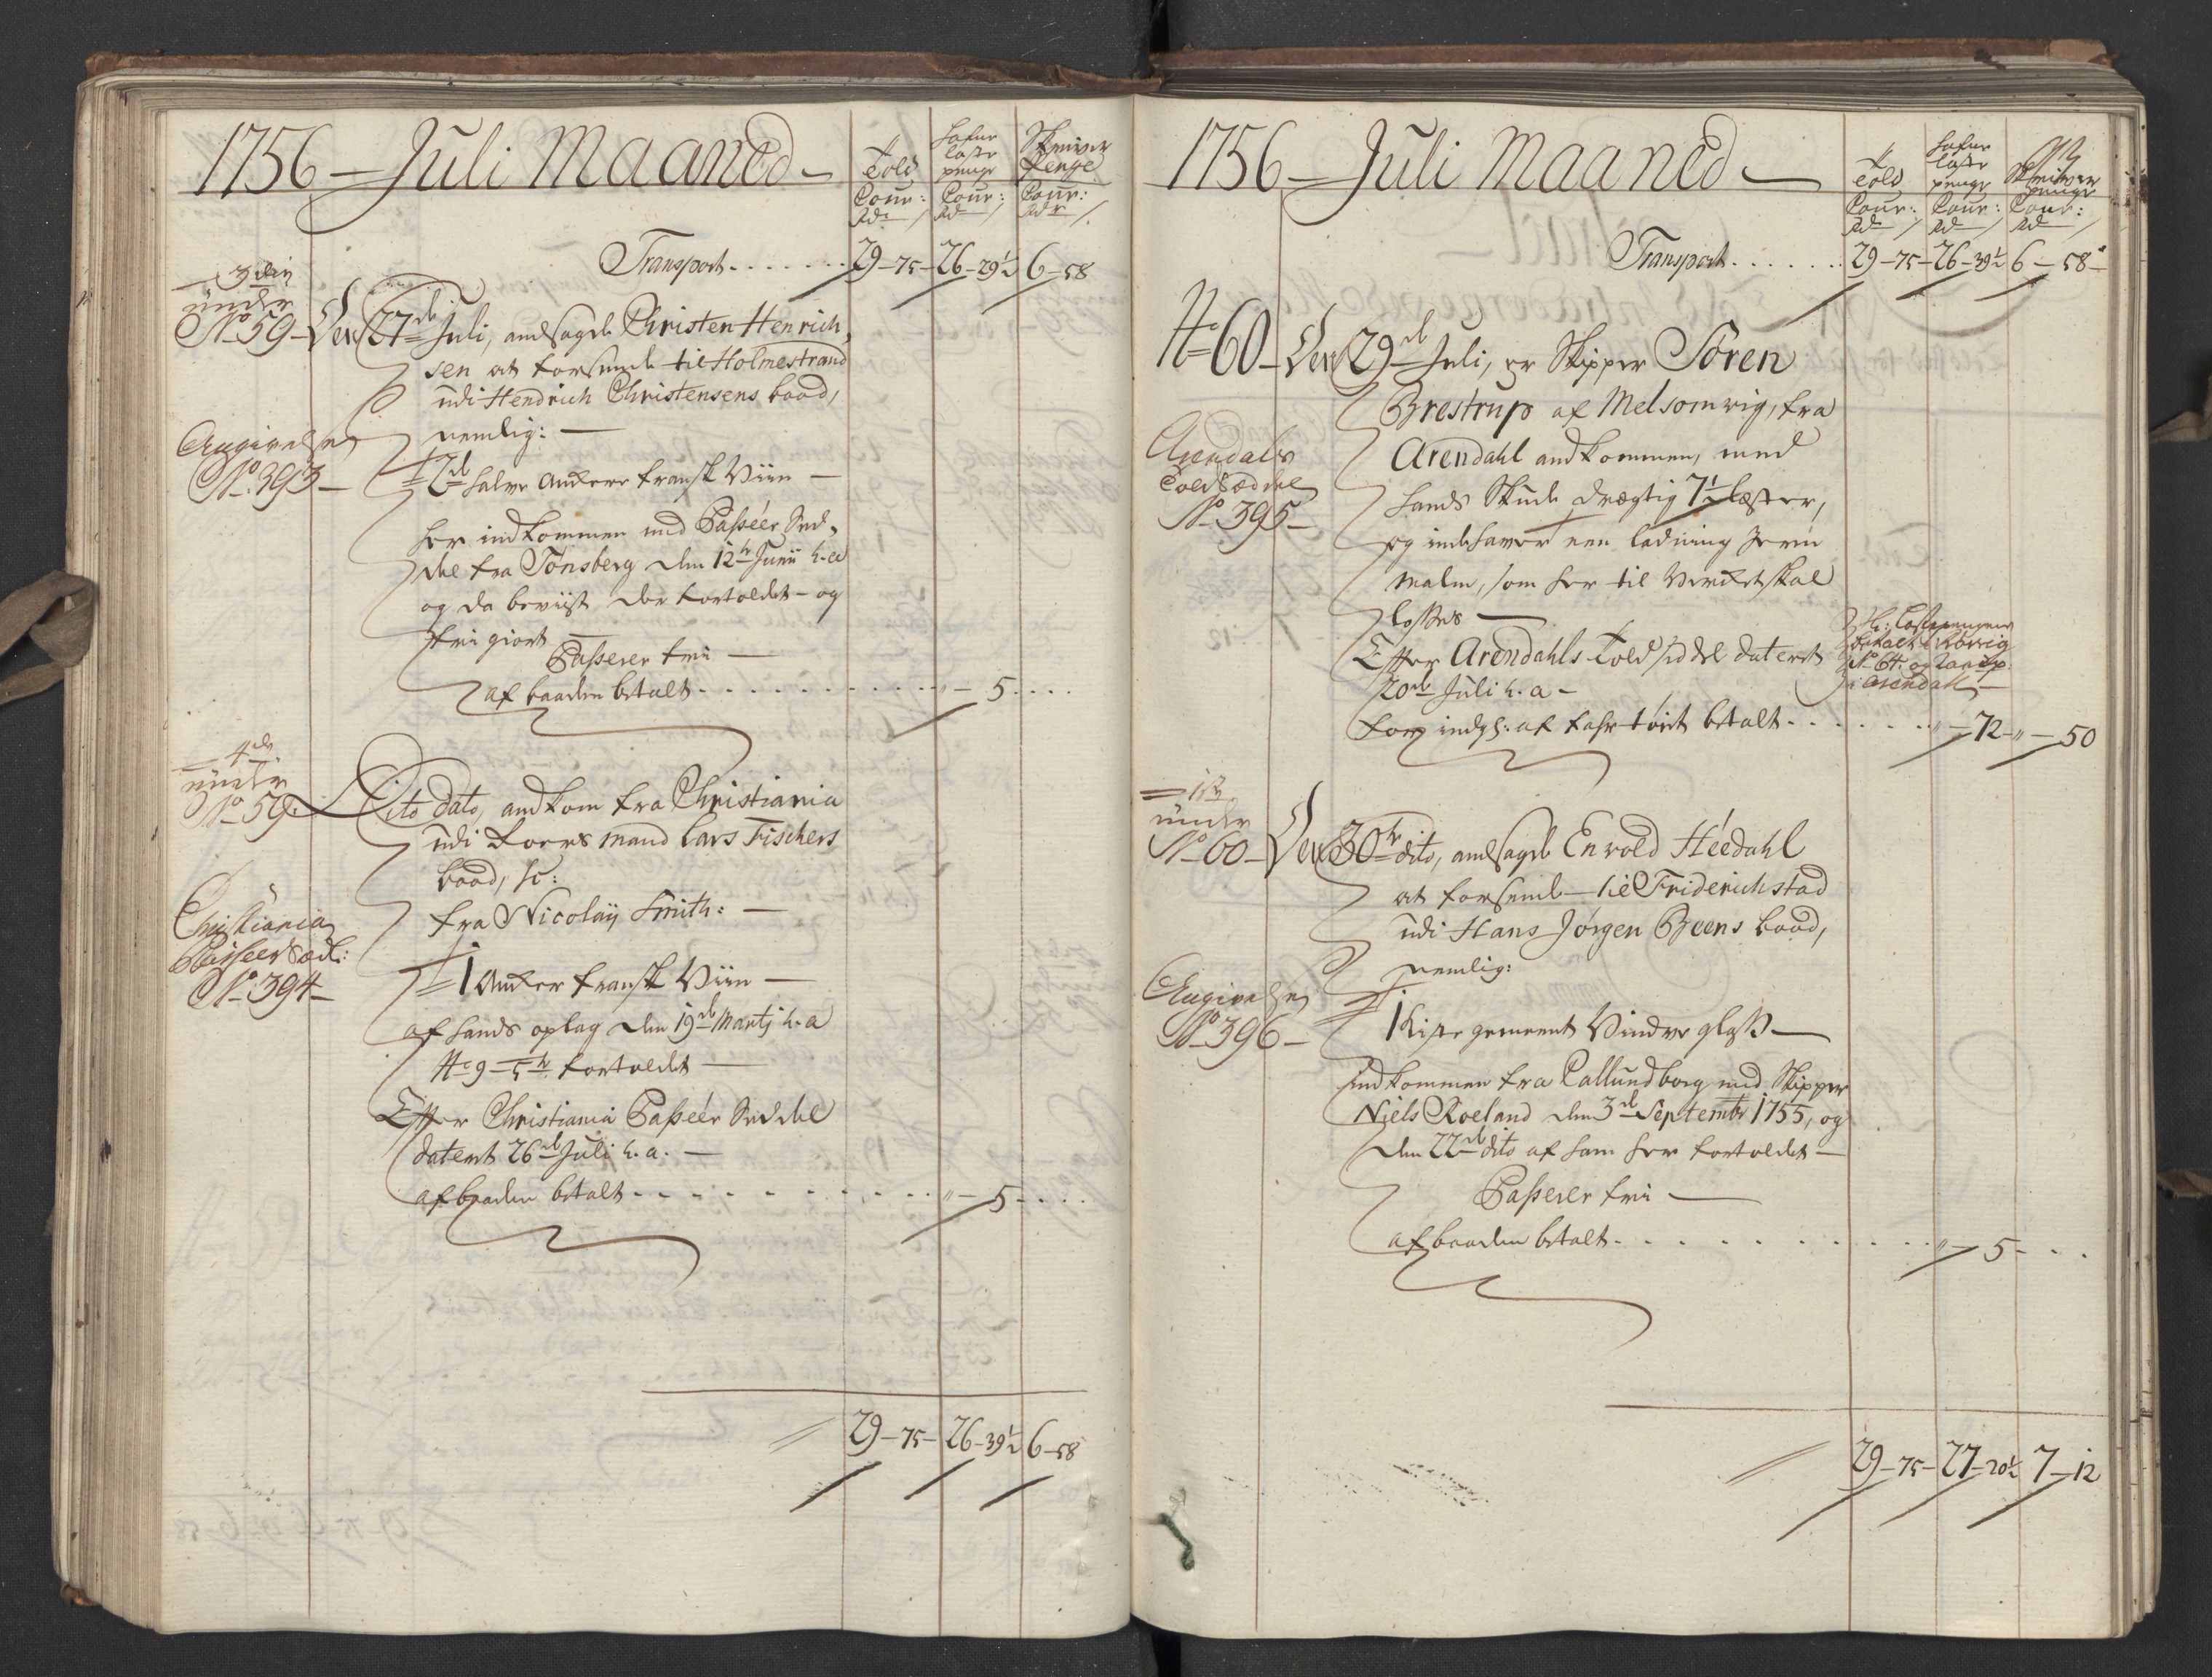 1756 – Juli Maaned –
Told
Cour:
Rdr
Hafne
læste
penge
Cour:
Rd
Skriver
Penge
Cour:
Rdr
Transport . . . . . . . 29–75– 26–29½ 6–58
3die
under
No 59
Den 27de Juli, andsagde Christen Henrich-
sen at forsende til Holmestrand
udi Hendrich Christensens baad,
nemlig: –
Angivelse
No 393 –
2de halve Ankere fransk Viin –
her indkommen med Passéer Sed-
del fra Tønsberg den 12te Junii h.a
og da beviist der fortoldet – og
fri giort –
Passerer frie –
af baaden betalt . . . . . . . . . „ – 5 . . . .
4de
under
No 59.
Dito dato, andkom fra Christiania
udi Foers mand Lars Fischers
baad, sc:
fra Nicolaÿ Smith: –
Christiania
Passeer Sædl:
No 394 –
1 Anker fransk Viin –
af hands oplag den 19de Martj h. a
No 9 – 5te fortoldet –
Efter Christiania Passéer Seddel
daterit 26de Juli h. a. –
af baaden betalt . . . . . . . . . . „ – 5 . . . .
29–75– 26–39½ 6–58
1756 – Juli Maaned –
Told
Cour:
Rd
Hafne
læste
penge
Cour:
Rd
Skriver
penge
Cour:
Rd
Transport . . . . . . 29–75– 26–39½ 6–58–
No 60 – Den 29de Juli, er Skipper Sören
Brestrup af Melsomvig, fra
Arendahl andkommen, med
Arendals
Told Sæddel
No 395 –
hands Skude drægtig 7½ læster,
og indehaver een ladning Jern
malm, som her til Verket skal
losses –
Efter Arendahls Told siddel daterit
20de Juli h. a –
læstepengene
betalt i
No 64. og
i Arendal –
for indg: af fahr tøiet betalt . . . . . . . „ – 72 – „ – 50
1te
under
No 60 – Den 30te dito, andsagde Envold Héedahl
at forsende til Friderichstad
udi Hans Jørgen Beens baad,
nemlig:
Angivelse
No 396 –
1 Kiste gemeent Vindve glass –
indkommen fra Callundborg med Skipper
Niels Roeland den 3de Septembr 1755, og
den 22de dito af ham her fortoldet –
Passerer frie –
af baaden betalt . . . . . . . . . . „ – 5 – . . .
29–75– 27–20½ 7–12